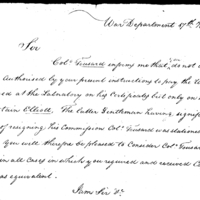 War Department 17th
Sir
Colo. Tousard informs me that you do not
Authorised by your present instructions to pay the
at the Labratory on his Certificates but only on
Captain Elliott. The latter Gentleman having signifi
of resigning his Commission Colo. Tousard was stationed
You will therefore be pleased to Consider Colo. Tousard
in all Cases in which you required and received C
as equivalent.
I am Sir &c.